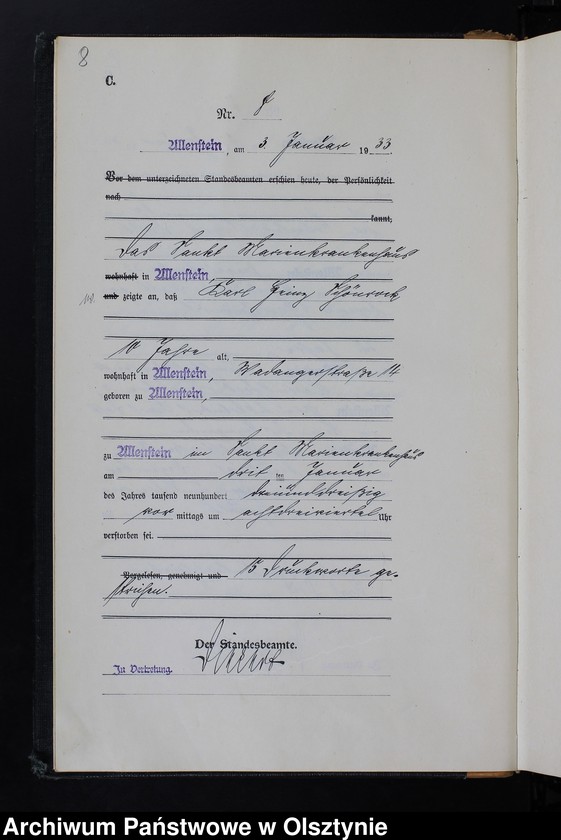 8
C.
Nr. 8
Allenstein, am 3. Januar 1933
Vor dem unterzeichneten Standesbeamten erschien heute, der Persönlichkeit
nach
kannt,
Das Sankt Marienkrankenhaus
wohnhaft in Allenstein,
und zeigte an, daß Karl Heinz Schönrock
10 Jahre alt,
wohnhaft in Allenstein, Wadangerstraße 14
geboren zu Allenstein,
zu Allenstein im Sankt Marienkrankenhaus
am drit ten Januar
des Jahres tausend neunhundert dreiunddreißig
vor mittags um achtdreiviertel Uhr
verstorben sei.
Vorgelesen, genehmigt und 15 Druckworte ge-
strichen.
Der Standesbeamte.
In Vertretung.
Archiwum Państwowe w Olsztynie